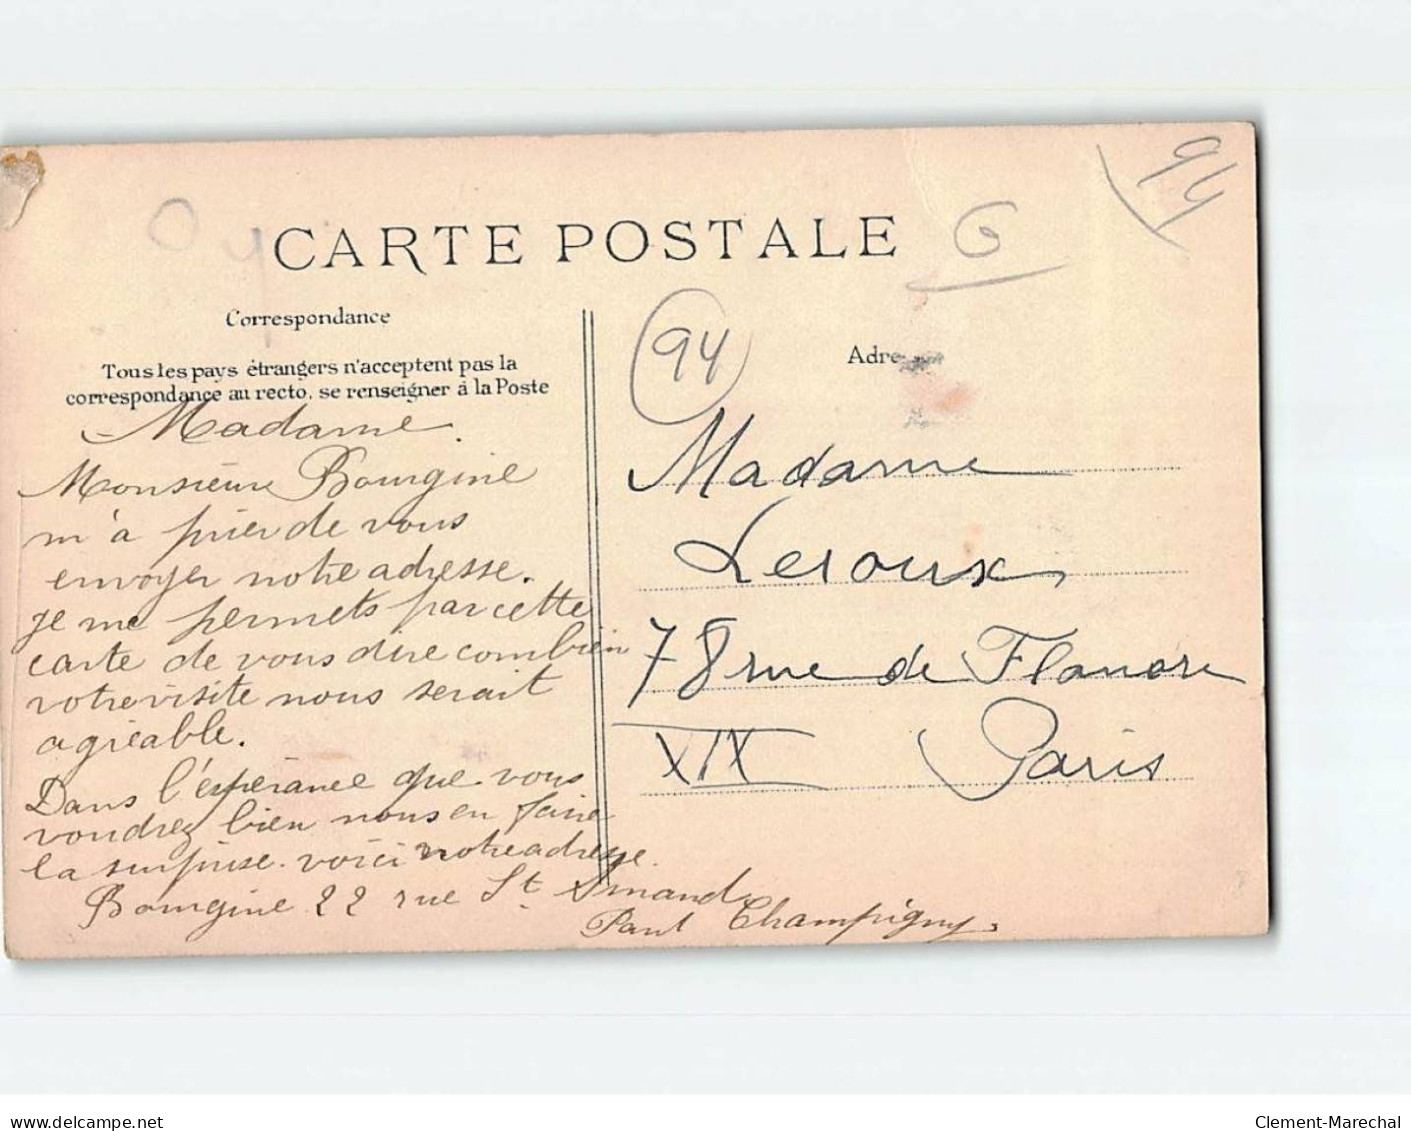 94
G
CARTE POSTALE
Correspondance
Tous les pays étrangers n'acceptent pas la
correspondance au recto, se renseigner à la Poste
Madame
Monsieur Bourgine
m'a prier de vous
envoyer notre adresse.
je me permets par cette
carte de vous dire combien
votre visite nous serait
agréable.
Dans l'espérance que vous
voudrez bien nous en faire
la surprise. voici notre adresse.
Bourgine 22 rue St Amand
Champigny
94
Adre
Madame
Leroux
78 rue de Flandre
XIX Paris
www.delcampe.net
Clement-Marechal